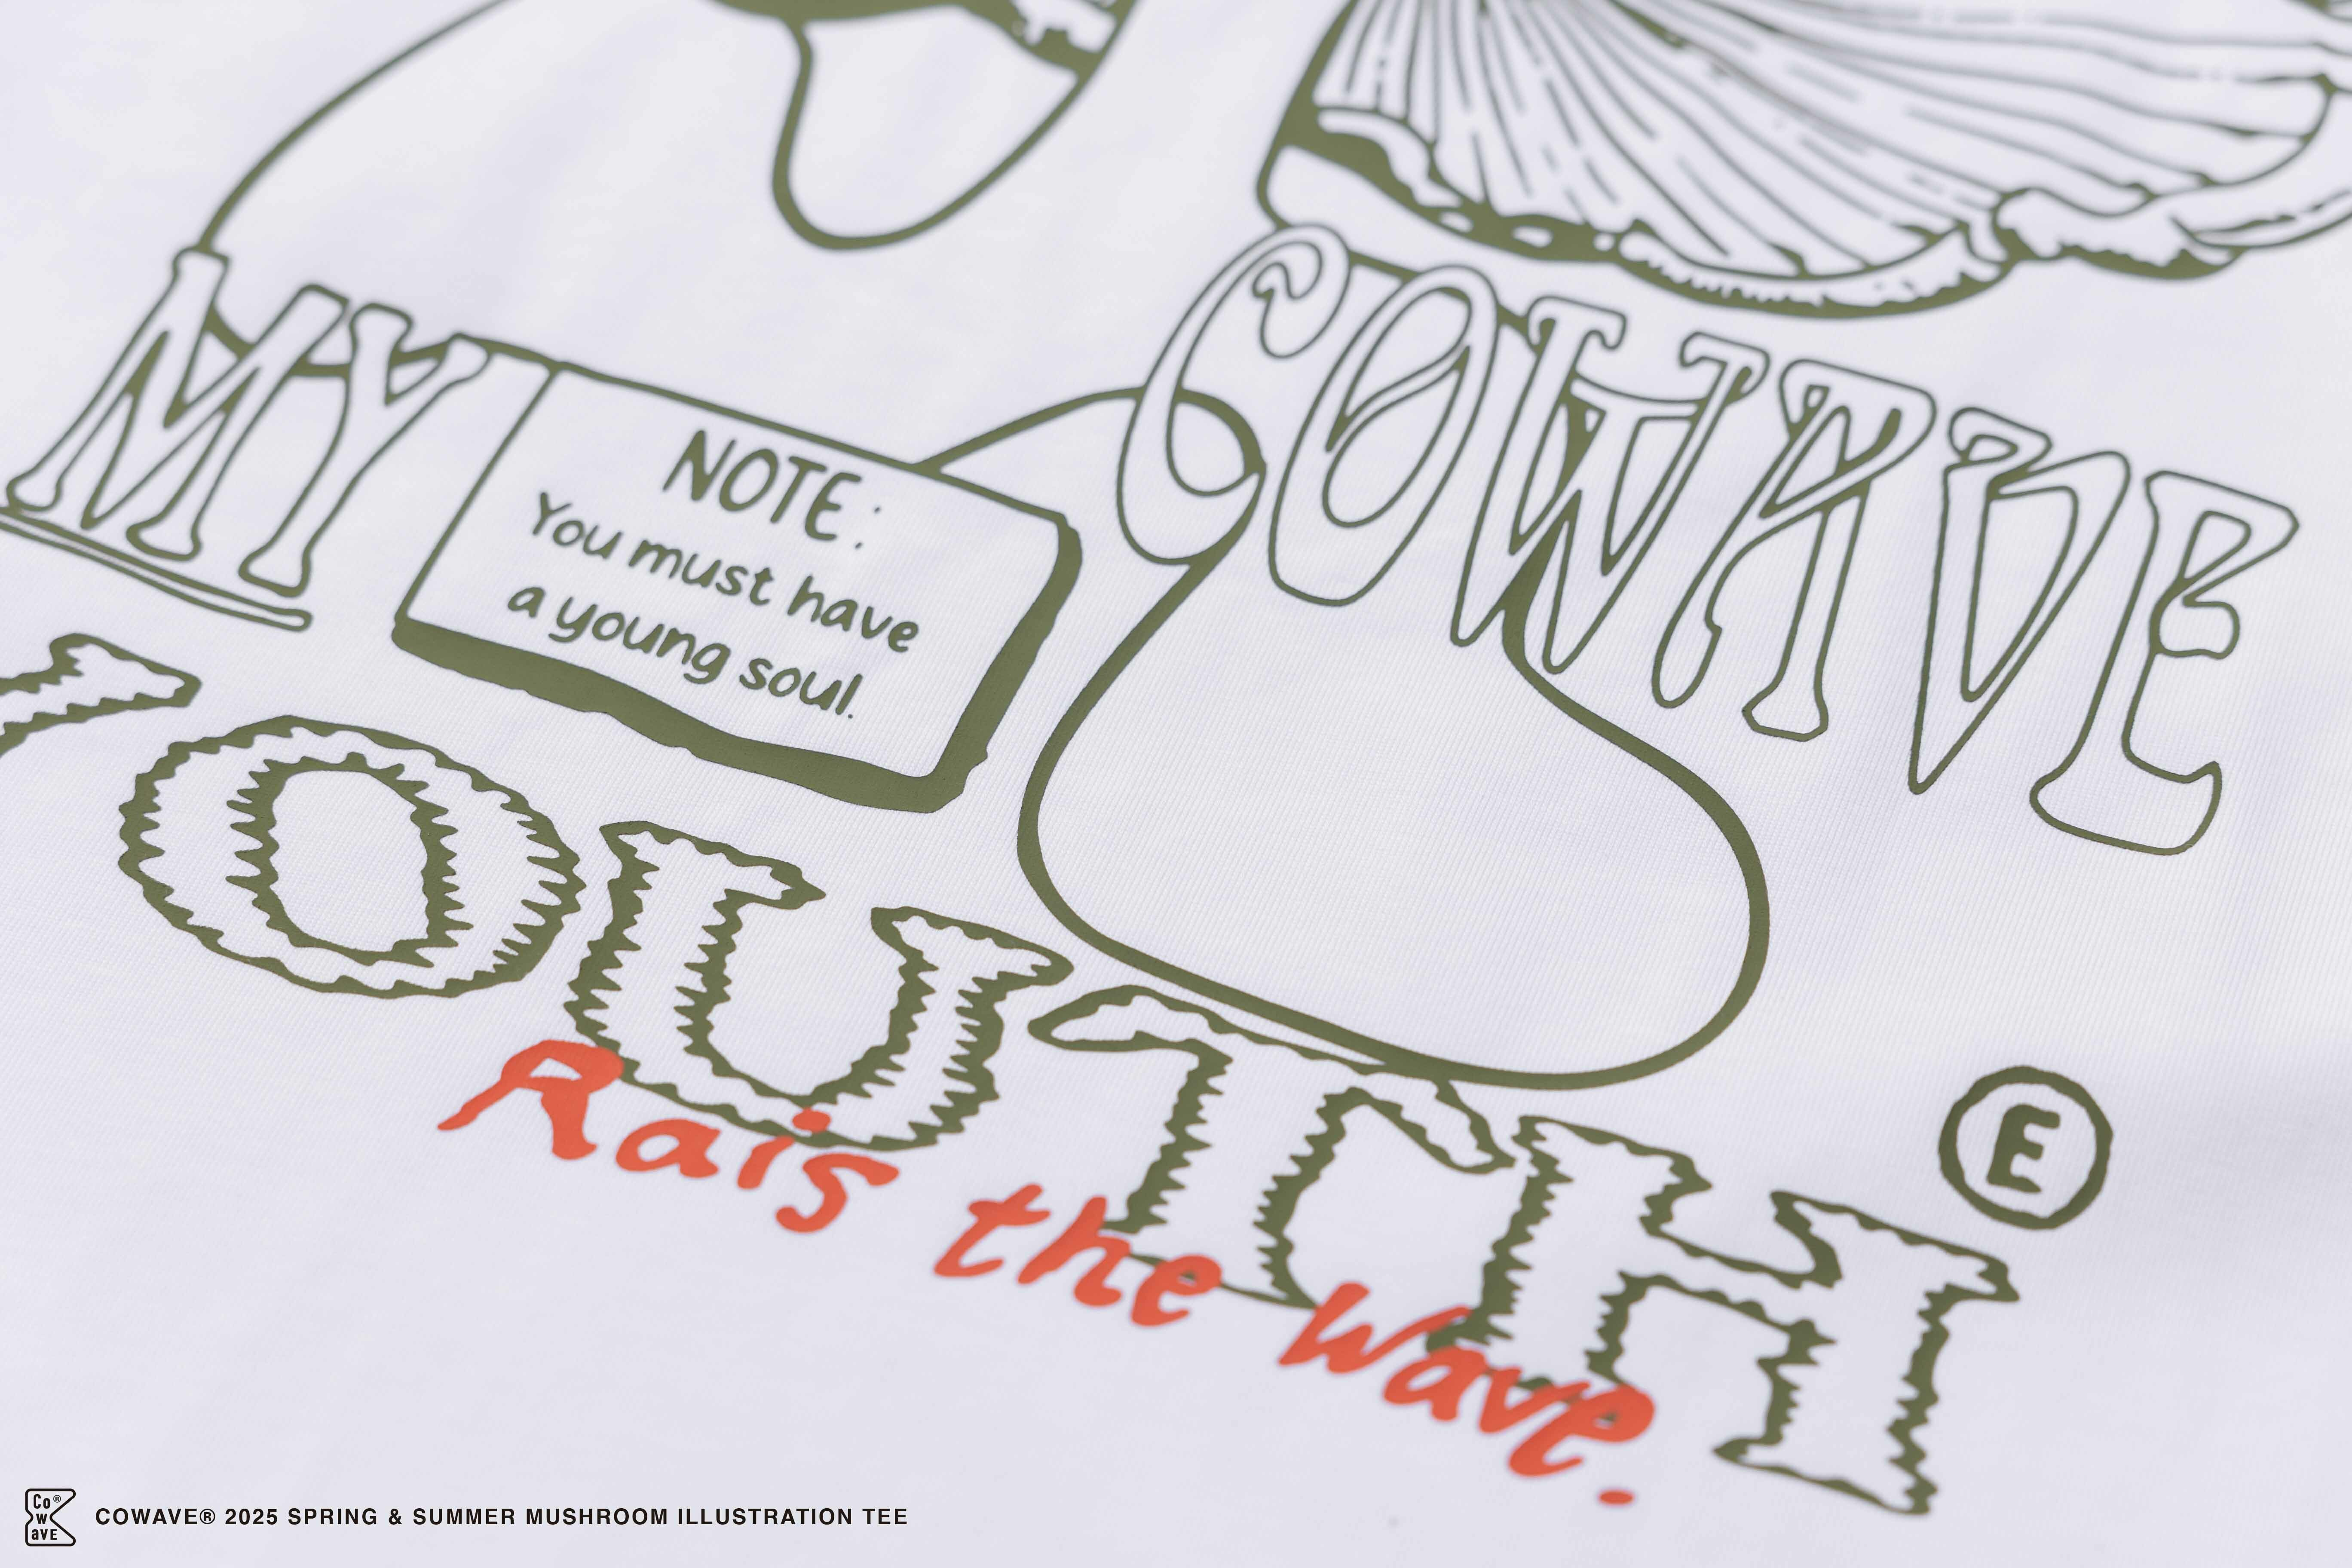 MY COWAVE
NOTE:
You must have
a young soul.
YOUTH
E
Rais the wave.
Co®
W
aVE
COWAVE® 2025 SPRING & SUMMER MUSHROOM ILLUSTRATION TEE